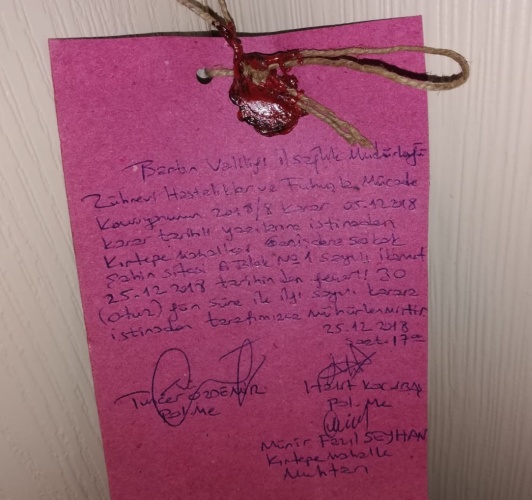 Bartın Valiliği İl Sağlık Müdürlüğü
Zührevi Hastalıklar ve Fuhuşla Mücade
Komisyonunun 2018/8 karar 05.12.2018
karar tarihli yazılarına istinaden
Kırtepe Mahallesi Sokak
Şahin sitesi A blok No 1 sayılı ikamet
25.12.2018 tarihinden 30
(otuz) gün süre ile ilgi sayılı karara
istinaden tarafımızca Mühürlenmiştir
25.12.2018
Saat: 17
Tuncer ÖZDEMİR
Pol. Me
Halit
Pol. Me
Münir Fazıl SEYHAN
Kırtepe Mahalle
Muhtarı